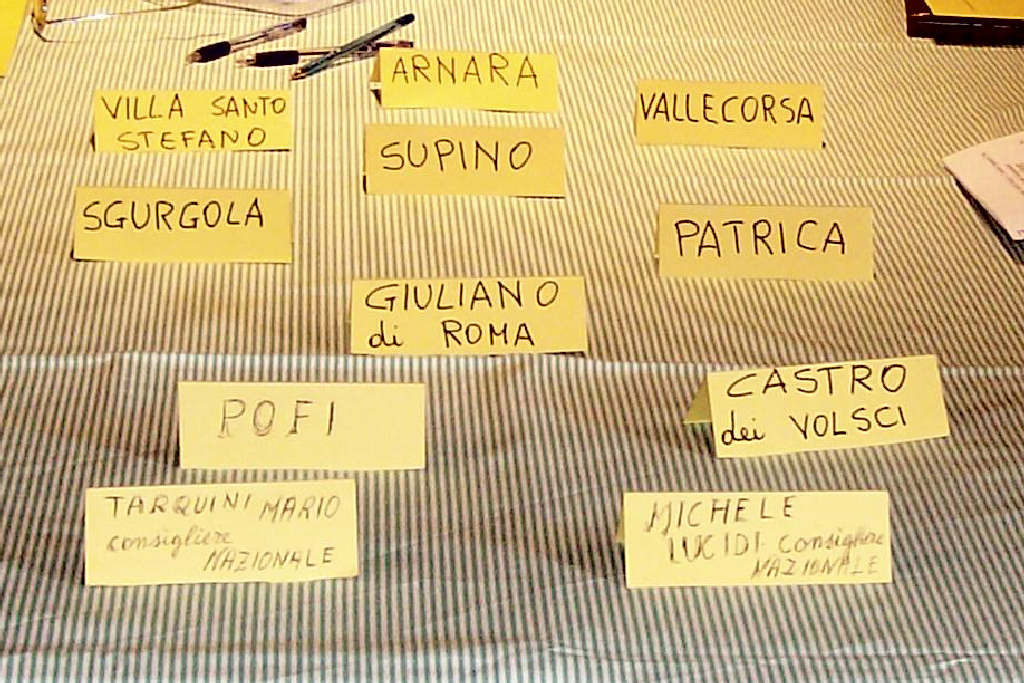 ARNARA
VILLA SANTO
STEFANO
VALLECORSA
SUPINO
SGURGOLA
PATRICA
GIULIANO
di ROMA
CASTRO
dei VOLSCI
POFI
TARQUINI MARIO
consigliere
NAZIONALE
MICHELE
LUCIDI consigliere
NAZIONALE